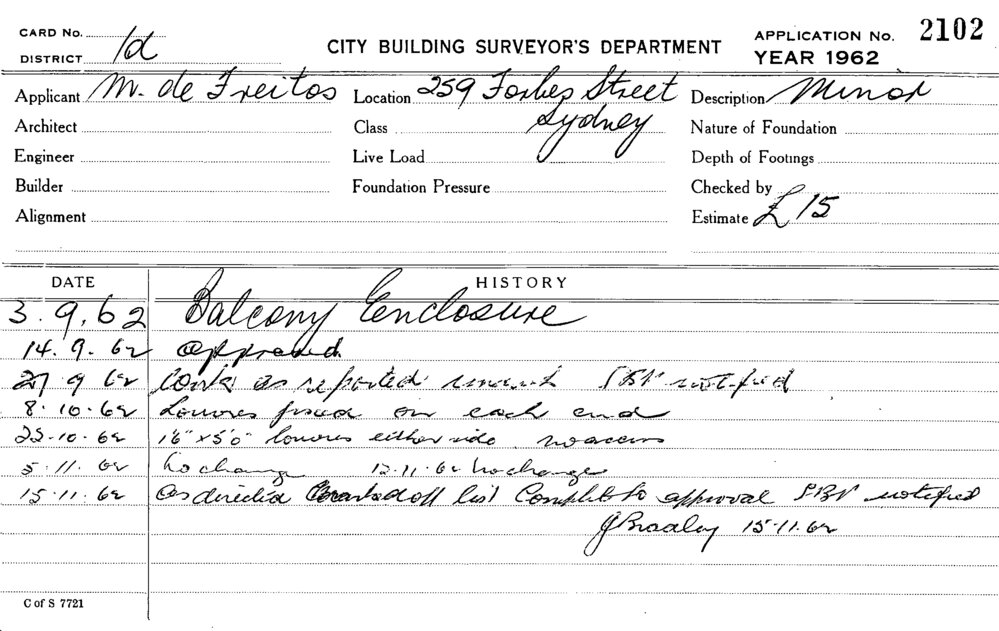 CARD No. 1d
DISTRICT
CITY BUILDING SURVEYOR'S DEPARTMENT
APPLICATION No. 2102
YEAR 1962
Applicant M. de Freitos Location 259 Forbes Street Description Minor
Architect Class Sydney Nature of Foundation
Engineer Live Load Depth of Footings
Builder Foundation Pressure Checked by
Alignment Estimate £15
DATE HISTORY
3.9.62 Balcony Enclosure
14.9.62 approved
27 9 62 Work as reported notified
8.10.62 Louvres fixed on each end
23.10.62 1'6" x 5'0" louvres either side no access
5.11.62 No change 12.11.62 No change
15.11.62 as directed marked off list Complete to approval notified
J Bradley 15.11.62
C of S 7721